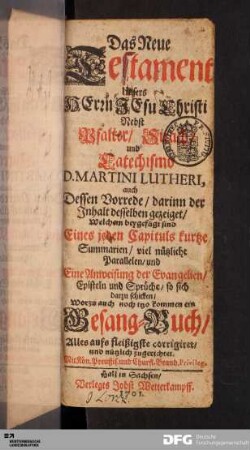 Das Neue
Testament
Unsers
HErrn JEsu Christi
Nebst
Psalter/
und
Catechismo
D. MARTINI LUTHERI,
auch
Dessen Vorrede/ darinn der
Inhalt desselben gezeiget/
Welchem beygefügt sind
Eines jeden Capituls kurtze
Summarien/ viel nützliche
Parallelen/ und
Eine Anweisung der Evangelien/
Episteln und Sprüche/ so sich
darzu schicken/
Worzu auch noch kommen ein
Gesang-Buch/
Alles aufs fleißigste corrigiret/
und nützlich zugerichtet.
Mit Kön. Preußis. und Churfl. Brand. Privileg.
Hall in Sachsen/
Verlegts Jobst Wetterkampff.
DFG
Deutsche
Forschungsgemeinschaft